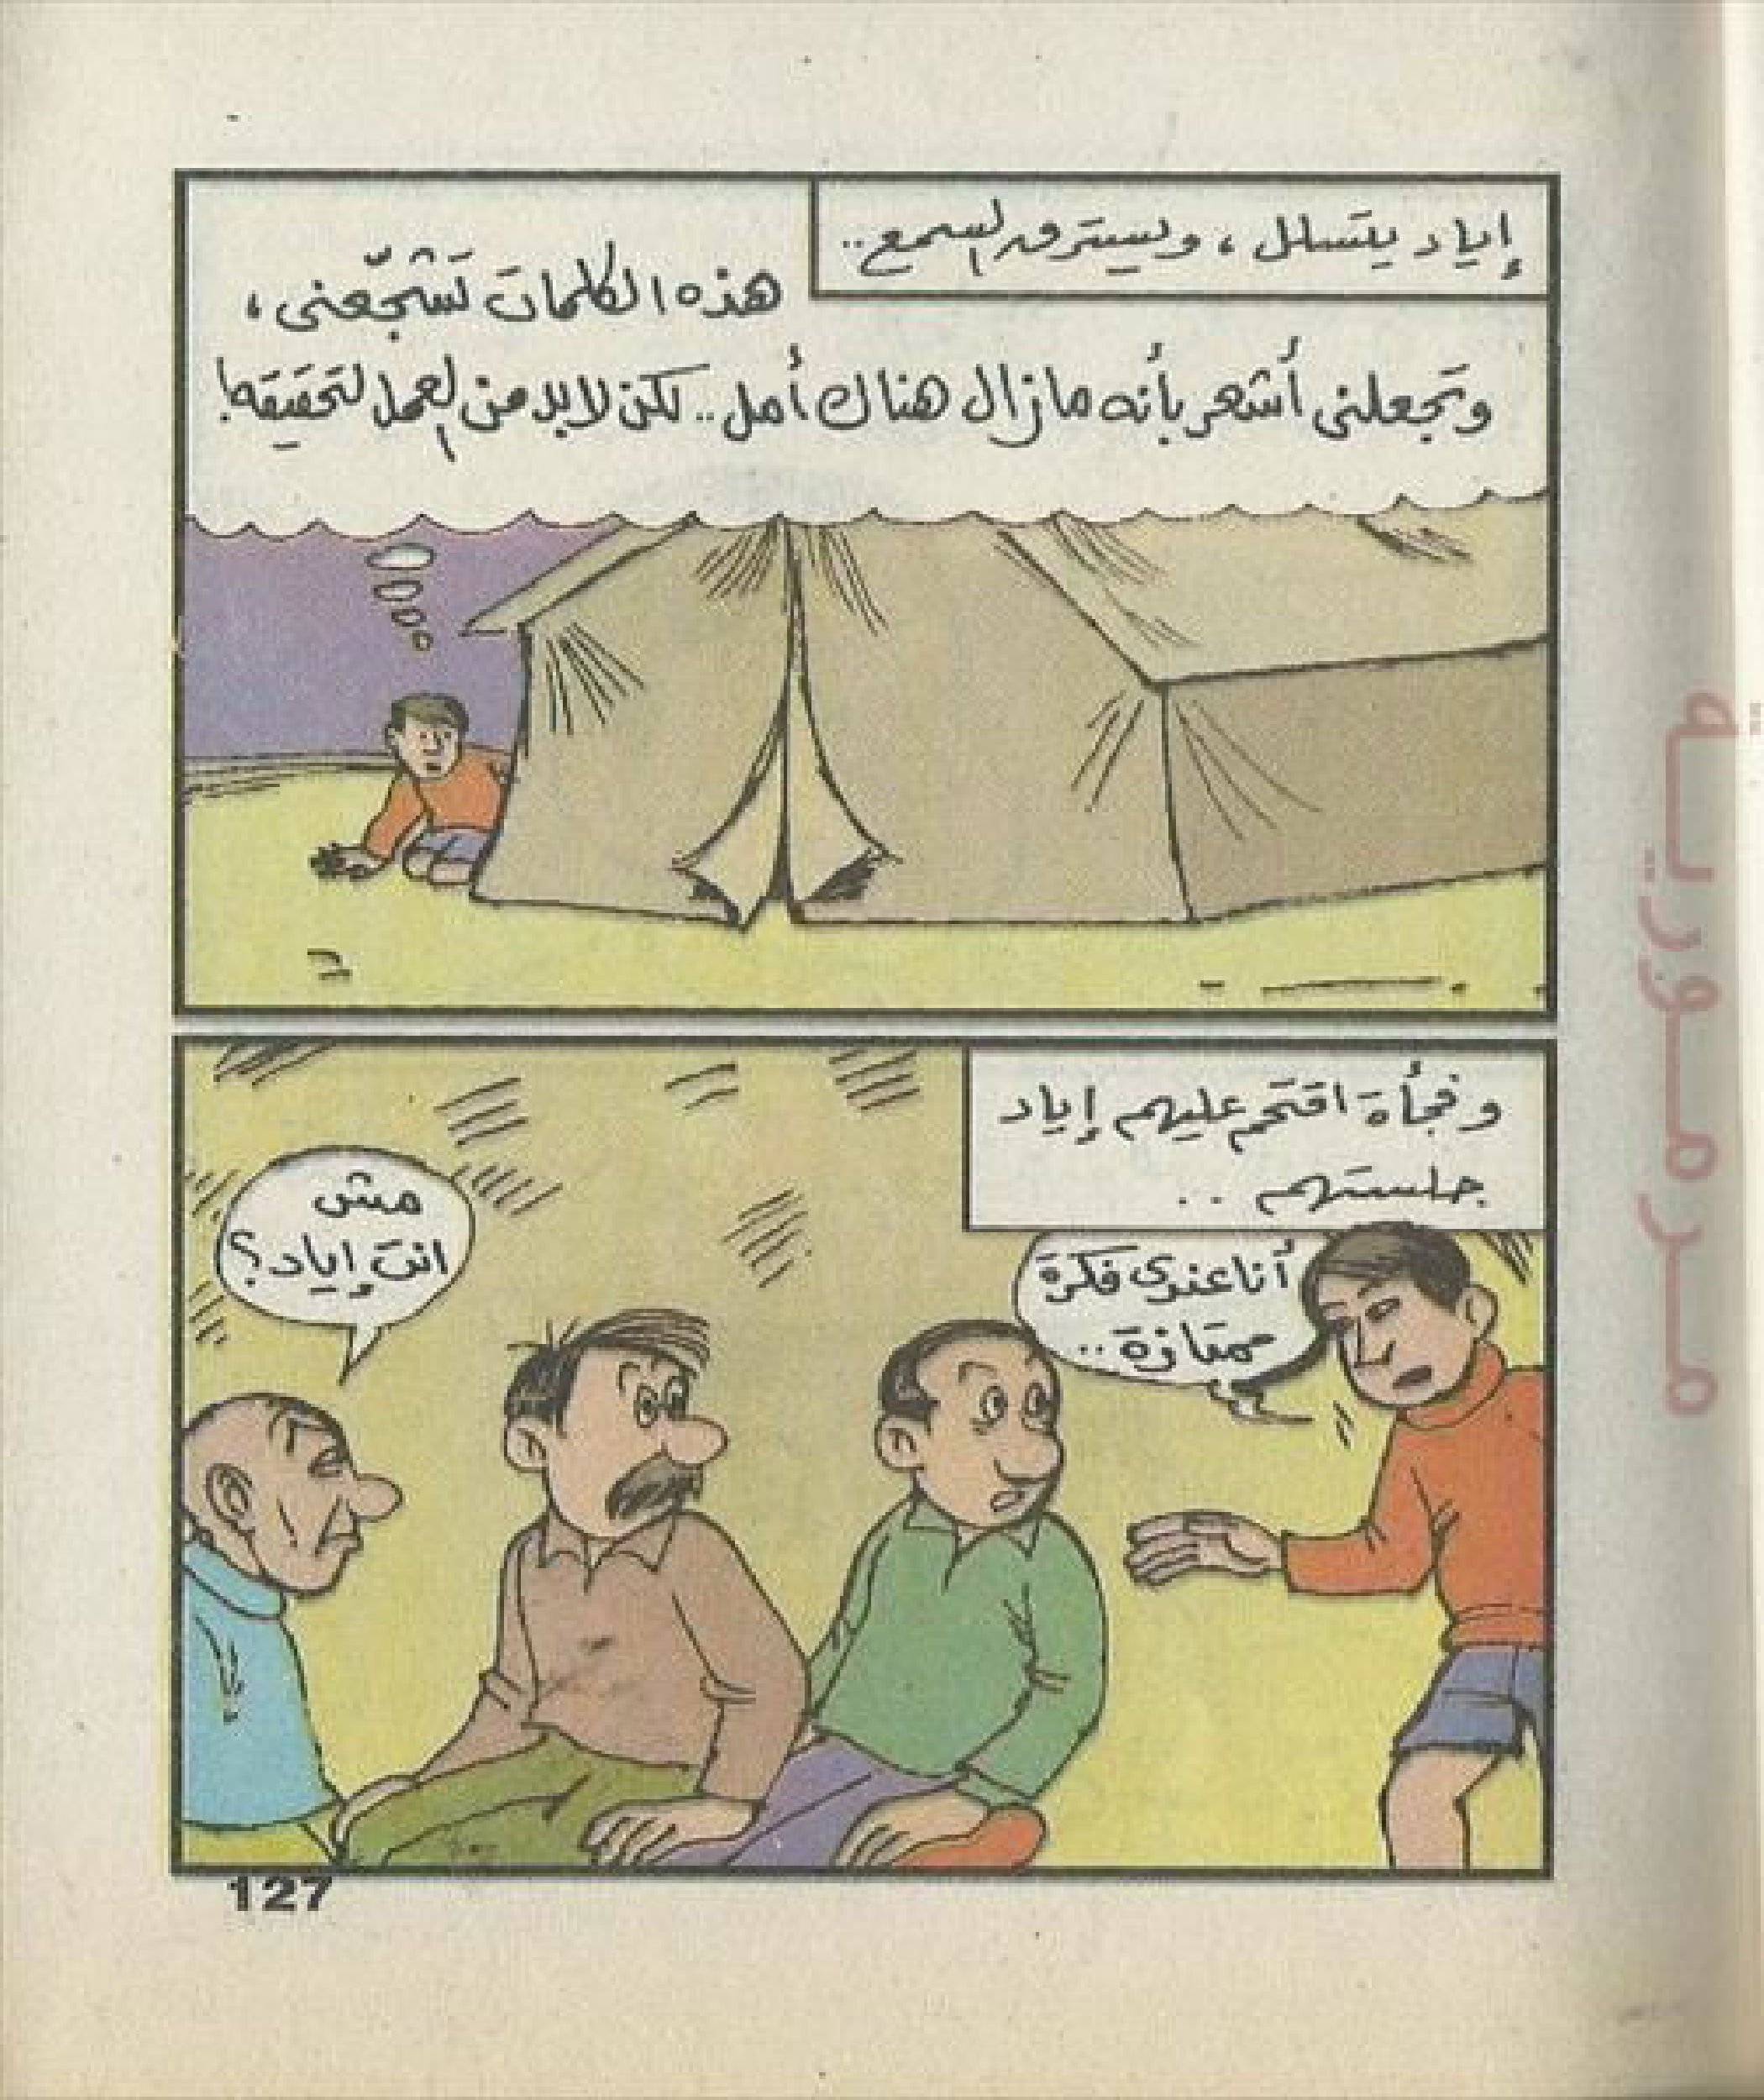 إياد يتسلل ، ويسترق السمع ..
هذه الكلمات تشجّعنى ،
وتجعلنى أشعر بأنه مازال هناك أمل .. لكن لابد من العمل لتحقيقه!
وفجأة اقتحم عليهم إياد
جلستهم ..
أنا عندى فكرة
ممتازة ..
مش
انت إياد ؟
127
مرمورية